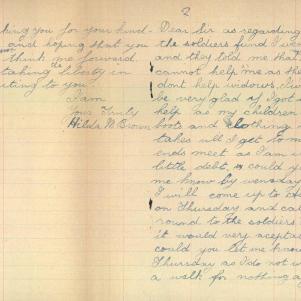 king you for your kind-
and hoping that you
think me forward.
taking the liberty in
iting to you.
I am
your Truly
Hilda M. Brown
2
Dear Sir as regarding
the soldiers fund I we
and they told me that
cannot help me as th
dont help widows, I wou
be very glad if I got
help as my children
boots and clothing
takes all I get to m
ends meet as I am
little debt, could yo
me know by wensday
I will come up to
on Thursday and ca
round to the soldiers
it would very aceptab
could you let me know
Thursday as I do not w
a walk for nothing